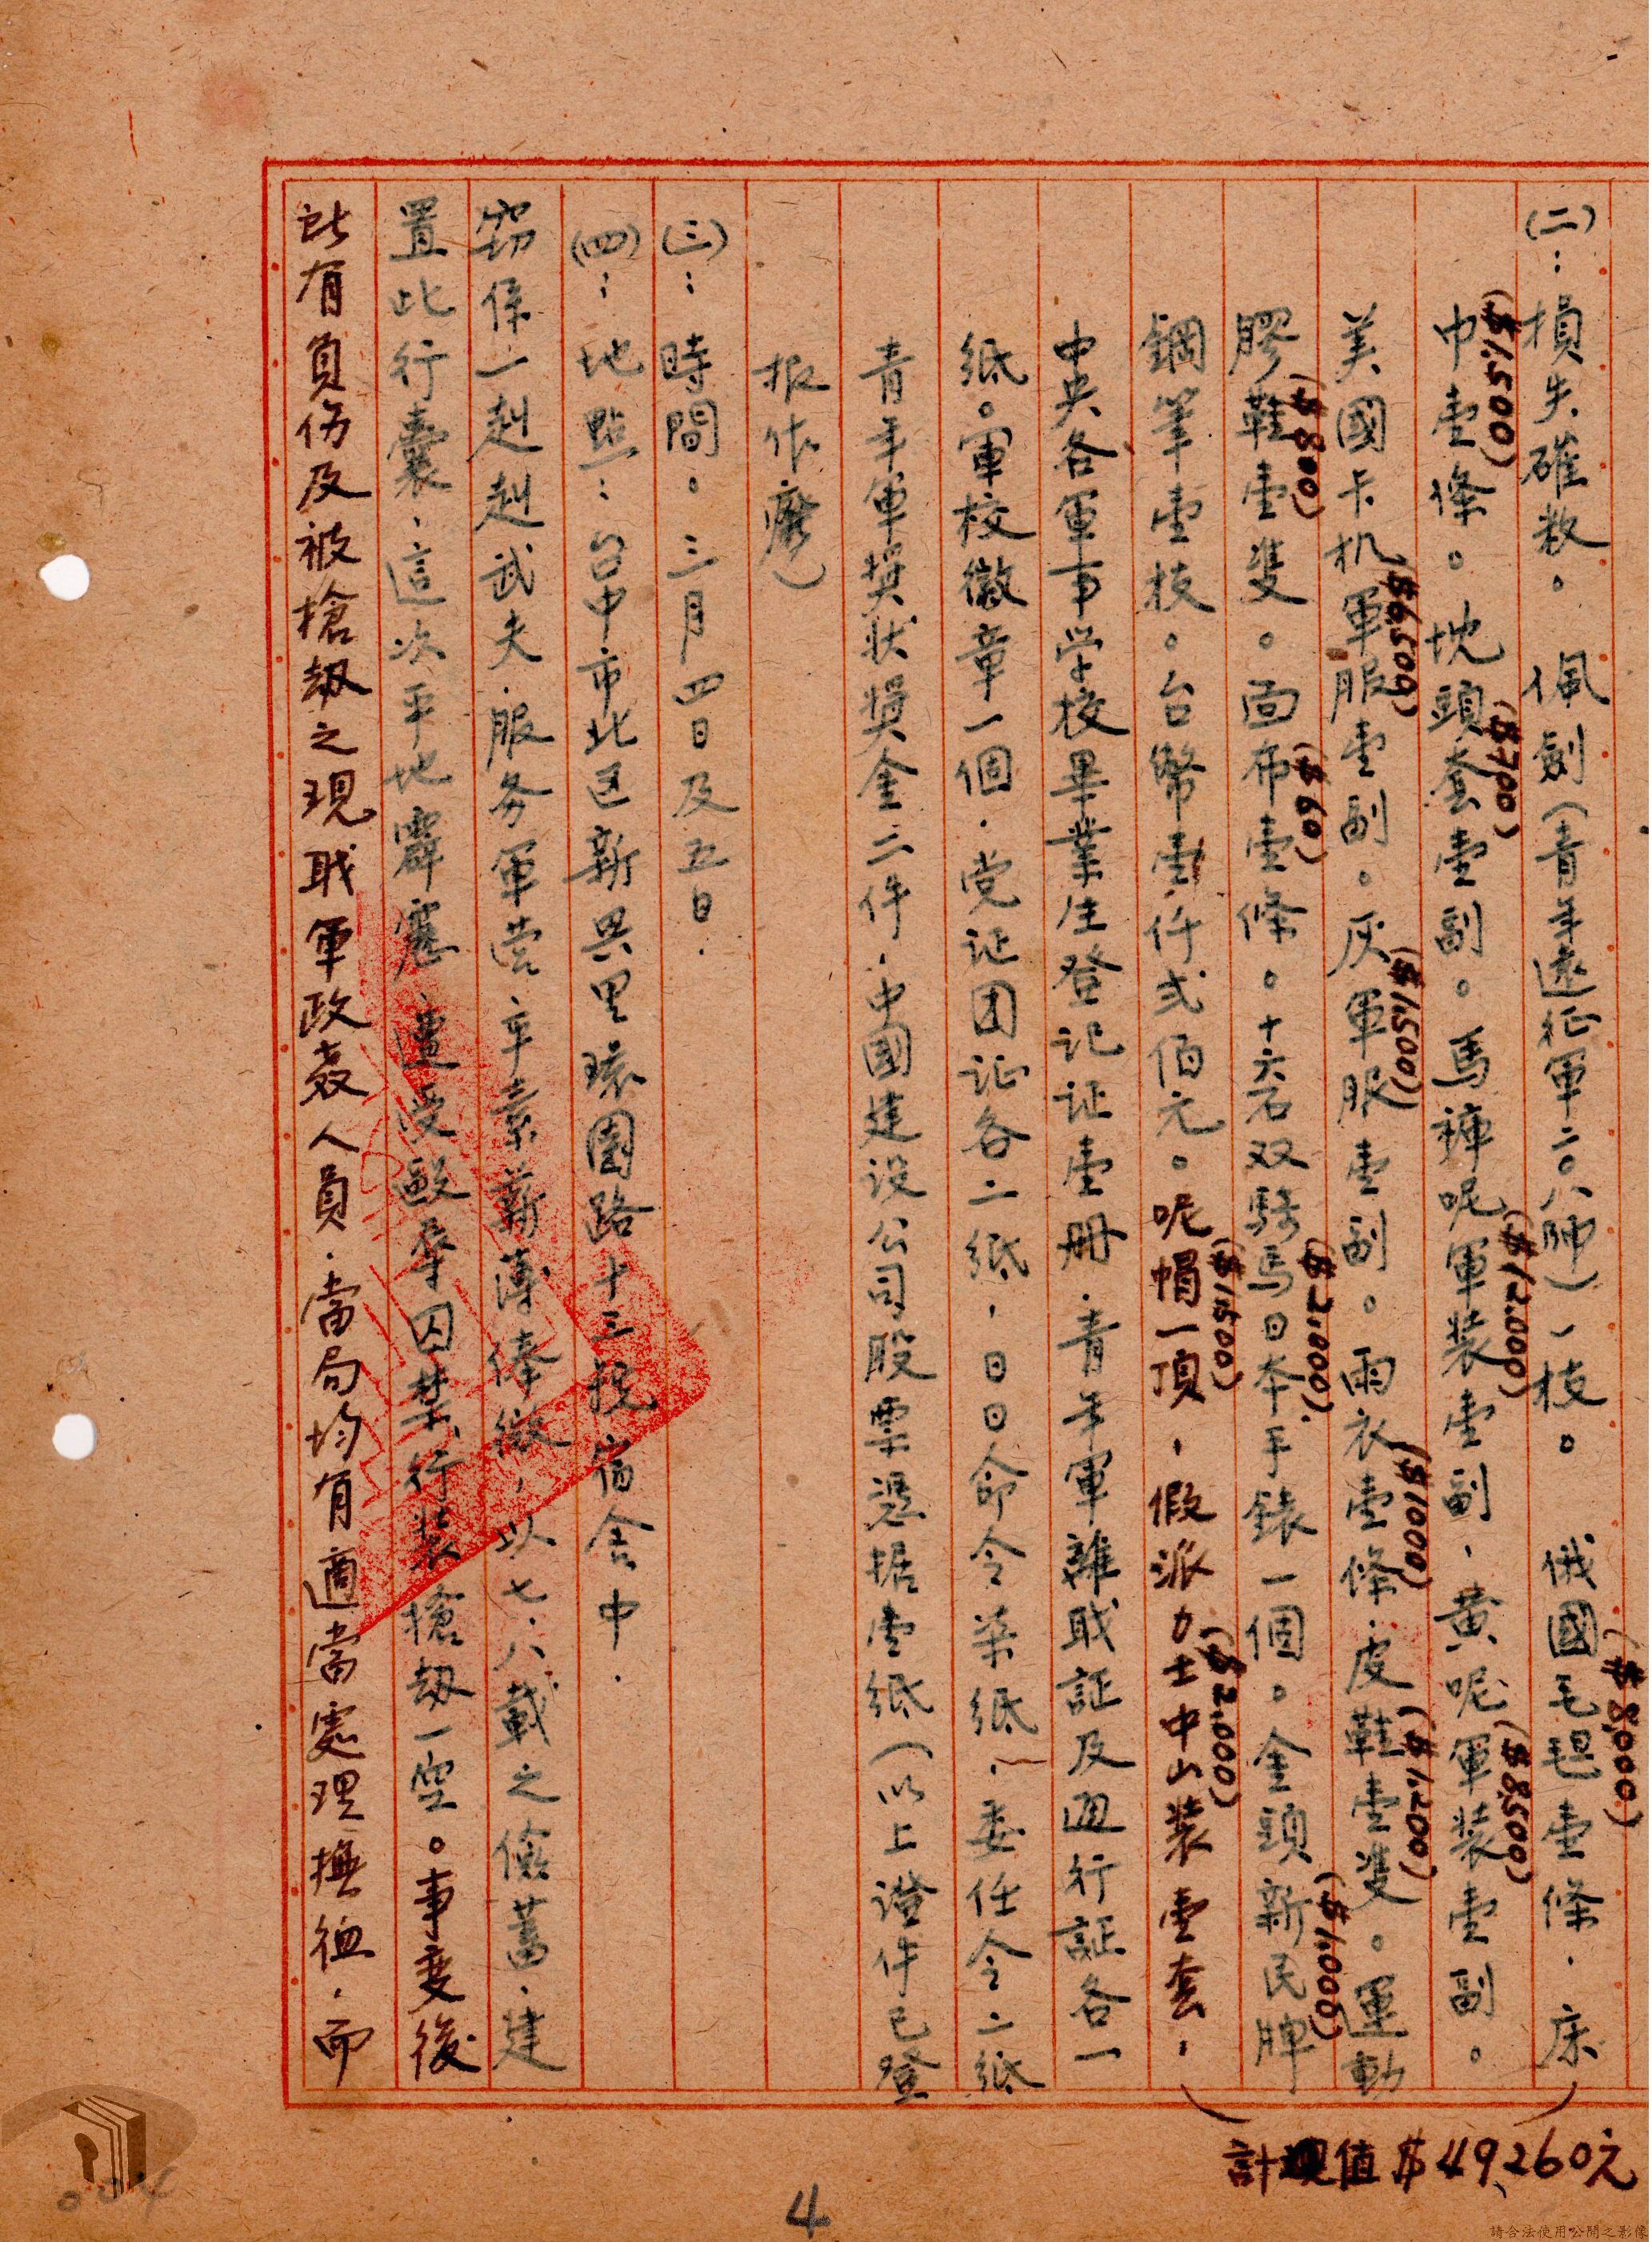 (二)：損失確数。佩劍(青年遠征軍二〇八師)一枝。俄國毛毯壹條．床
($8,000)
巾壹條。枕頭套壹副。馬褲呢軍裝壹副．黃呢軍裝壹副。
($1,500) ($700) ($12,000) ($8,500)
美國卡机軍服壹副。灰軍服壹副。雨衣壹條．皮鞋壹雙。運動
($6,500) ($1,500) ($1000) ($1,200)
膠鞋壹雙。面布壹條。十六石双騎馬日本手錶一個。金頭新民牌
($800) ($60) ($2,000) ($1,000)
鋼筆壹枝。台幣壹仟弍佰元。呢帽一頂．假派力士中山裝壹套．
($1500) ($2,000)
中央各軍事学校畢業生登记证壹册．青年軍離职証及通行証各一
紙。軍校徽章一個．党证团证各二紙．日日命令柒紙．委任令二紙
青年軍奨状奨金二件．中國建设公司股票憑据壹紙(以上證件已登
报作廢)
(三)：時間。三月四日及五日．
(四)：地點：台中市北区新興里環園路十三號宿舍中．
窃係一赳赳武夫．服务軍营．平素薪薄俸微．以七．八載之儉蓄．建
置此行囊．這次平地霹靂．遭受毆辱囚禁．行裝搶刼一空。事变後
所有負伤及被搶刼之現职軍政教人員．當局均有適當處理撫恤．而
計現值$49,260元
4
004
請合法使用公開之影像